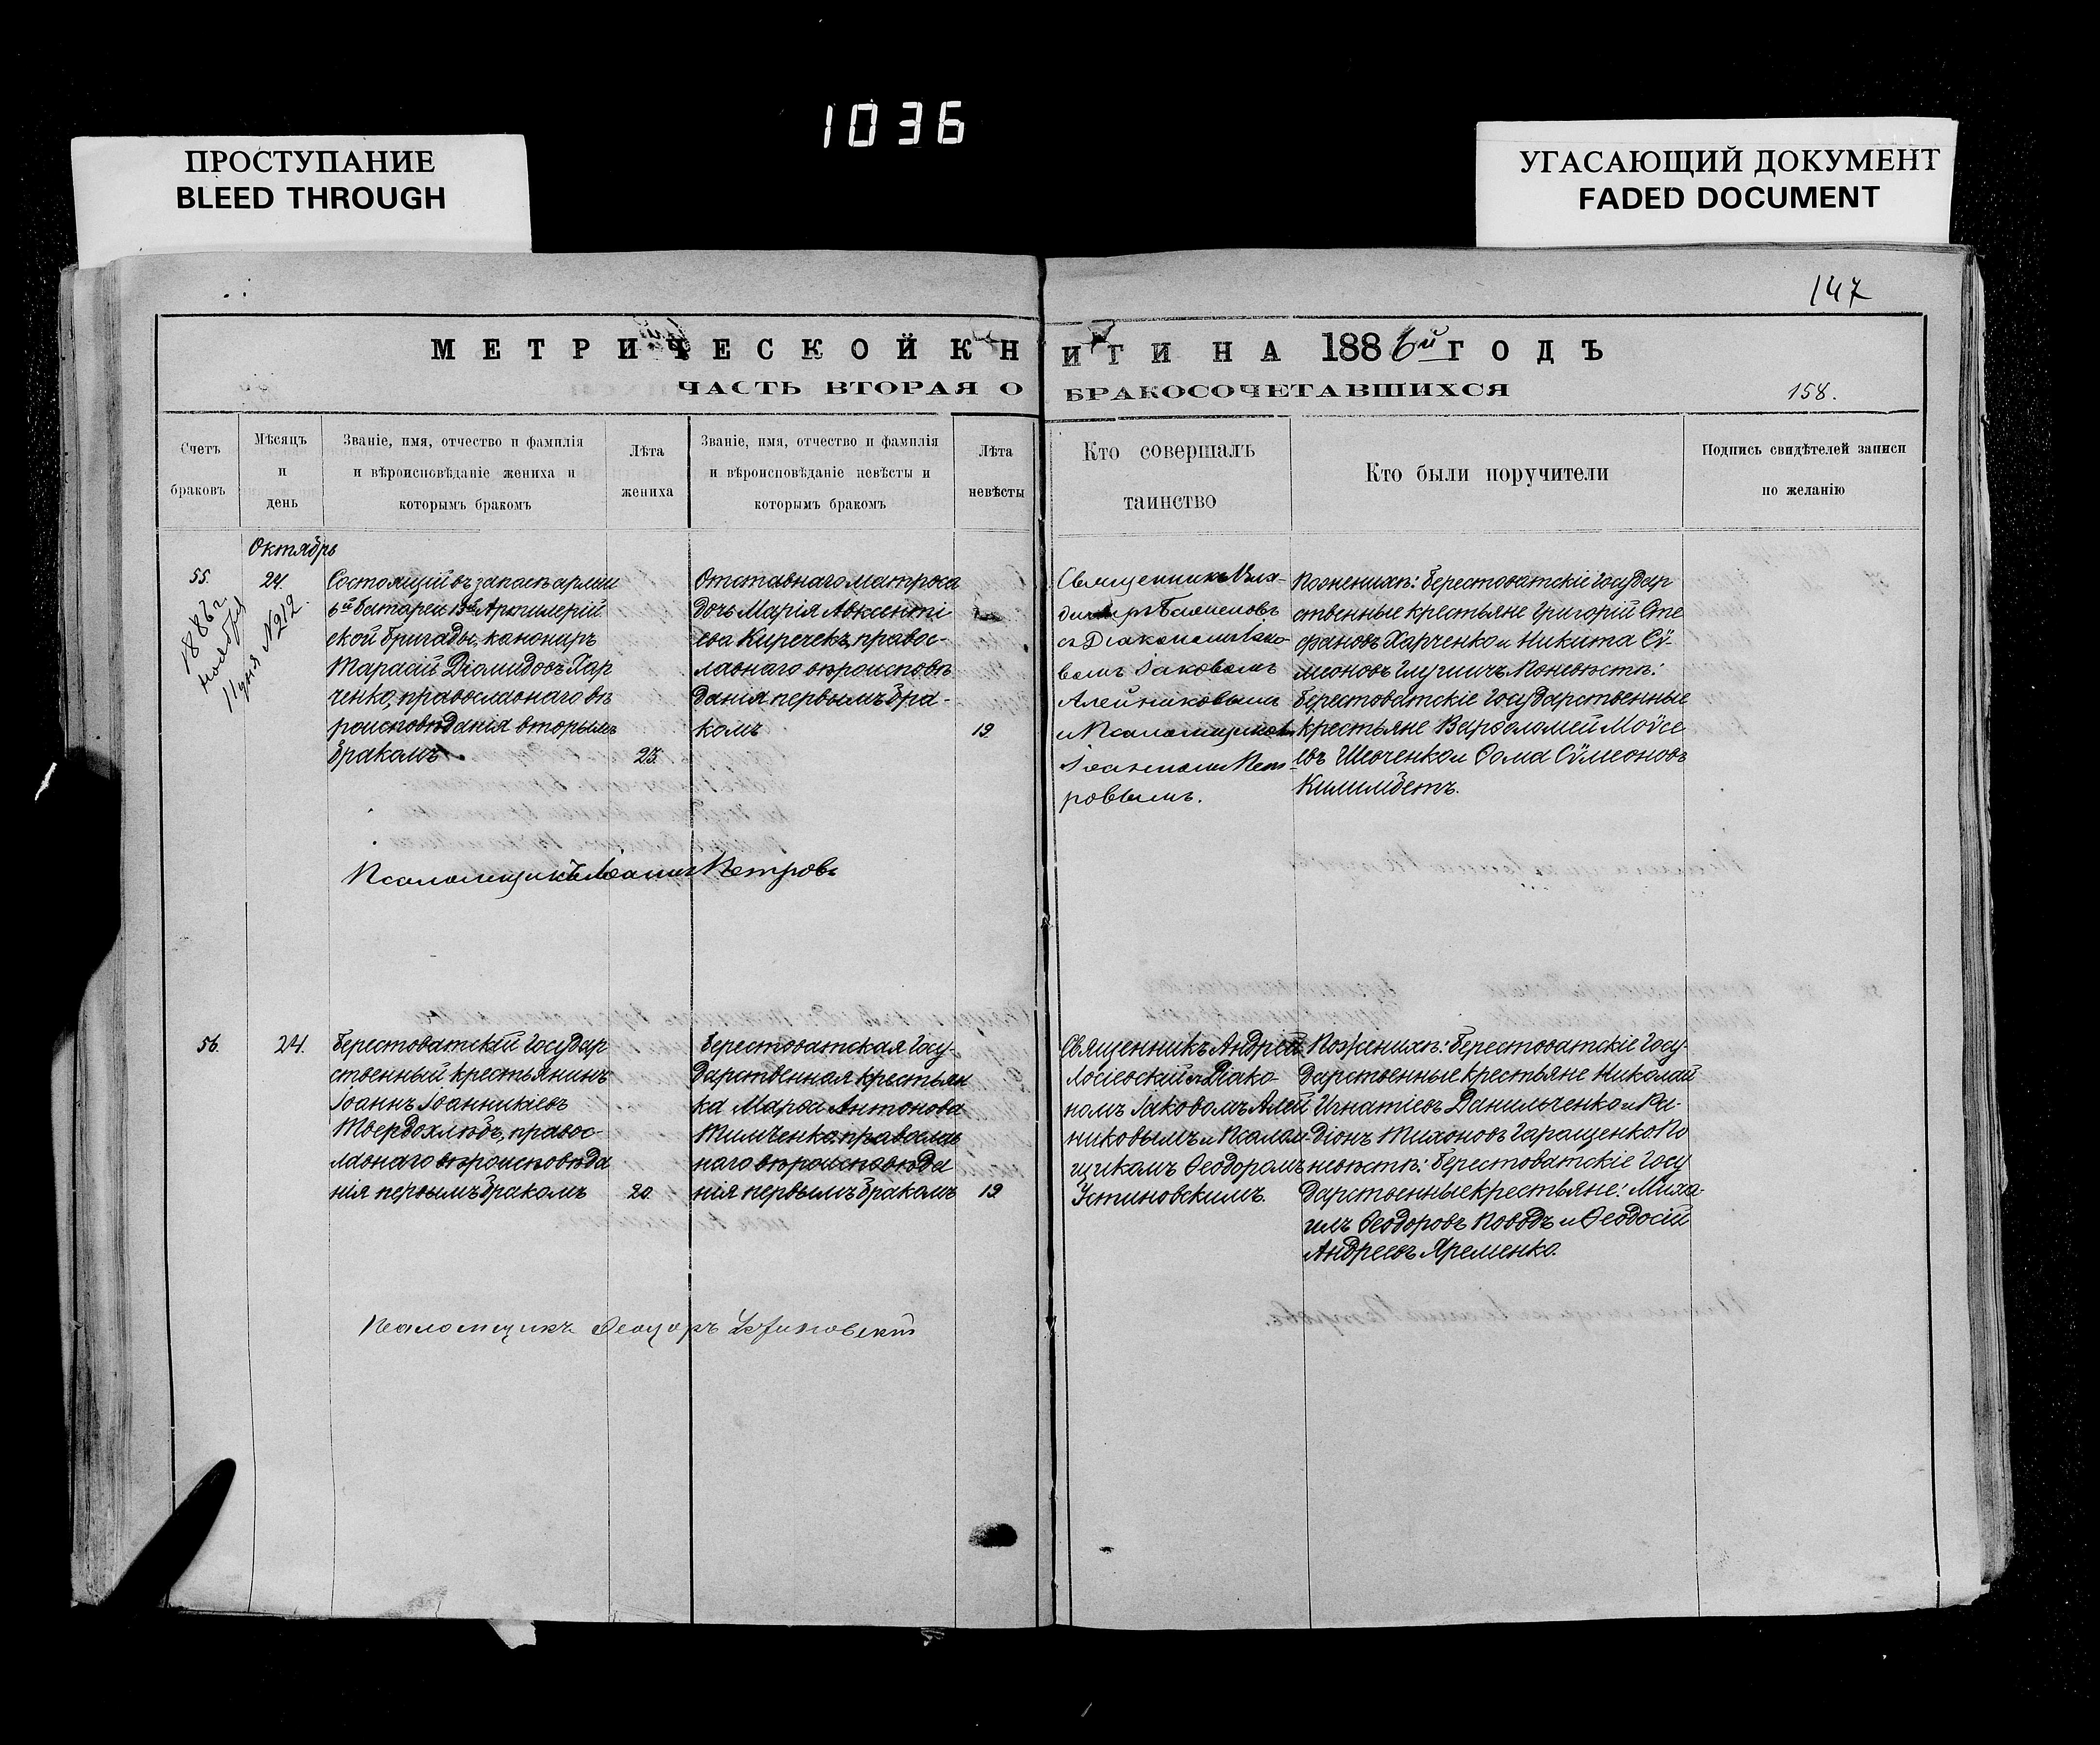 1036
ПРОСТУПАНИЕ
BLEED THROUGH
УГАСАЮЩИЙ ДОКУМЕНТ
FADED DOCUMENT
147
МЕТРИЧЕСКОЙ КНИГИ НА 1886й ГОДЪ
ЧАСТЬ ВТОРАЯ О БРАКОСОЧЕТАВШИХСЯ
158.
Счетъ
браковъ
Мѣсяцъ
и
день
Званіе, имя, отчество и фамилія
и вѣроисповѣданіе жениха и
которымъ бракомъ
Лѣта
жениха
Званіе, имя, отчество и фамилія
и вѣроисповѣданіе невѣсты и
которымъ бракомъ
Лѣта
невѣсты
Кто совершалъ
таинство
Кто были поручители
Подпись свидѣтелей записи
по желанію
Октябрь
55.
1886 г.
ноября
11 дня №212.
24.
Состоящій въ запасѣ арміи
6й батареи 13й Артилерій
ской бригады, канониръ
Тарасій Діомидовъ Хар
ченко, православнаго вѣ
роисповѣданія вторымъ
бракомъ.
25.
Отставнаго матроса
дочь Марія Авксенті
ева Киречекъ, правос-
лавнаго вѣроисповѣ
данія первымъ бра-
комъ
19.
Священникъ
съ Діакономъ
Іаковомъ
Алейниковымъ
и Псаломщикомъ
Іоанномъ Пет
ровымъ.
По женихѣ: Берестоватскіе Государ
ственные крестьяне Григорій Сте
фановъ Харченко и Никита Сѵ-
меоновъ По невѣстѣ:
Берестоватскіе Государственные
крестьяне Варѳоломей Моѵсе
евъ Шевченко и Ѳома Сѵмеоновъ
Килимбетъ.
Псаломщикъ Іоаннъ Петровъ
56.
24.
Берестоватскій Государ
ственный крестьянинъ
Іоаннъ Іоанникіевъ
Твердохлѣбъ, правос-
лавнаго вѣроисповѣда
нія первымъ бракомъ
20.
Берестоватская Госу-
дарственная крестьян
ка Марѳа Антонова
Тимченко, православ
наго вѣроисповѣда
нія первымъ бракомъ
19
Священникъ Андрей
Лосіевскій съ Діако-
номъ Іаковомъ Алей
никовымъ и Псалом-
щикомъ Ѳеодоромъ
Устиновскимъ.
По женихѣ: Берестоватскіе Госу-
дарственные крестьяне Николай
Игнатіевъ Данильченко и Ро-
діонъ Тихоновъ Гаращенко. По
невѣстѣ: Берестоватскіе Госу
дарственные крестьяне: Миха-
илъ Ѳеодоровъ и Ѳеодосій
Андреевъ Яременко.
Псаломщикъ Ѳеодоръ Устиновскій